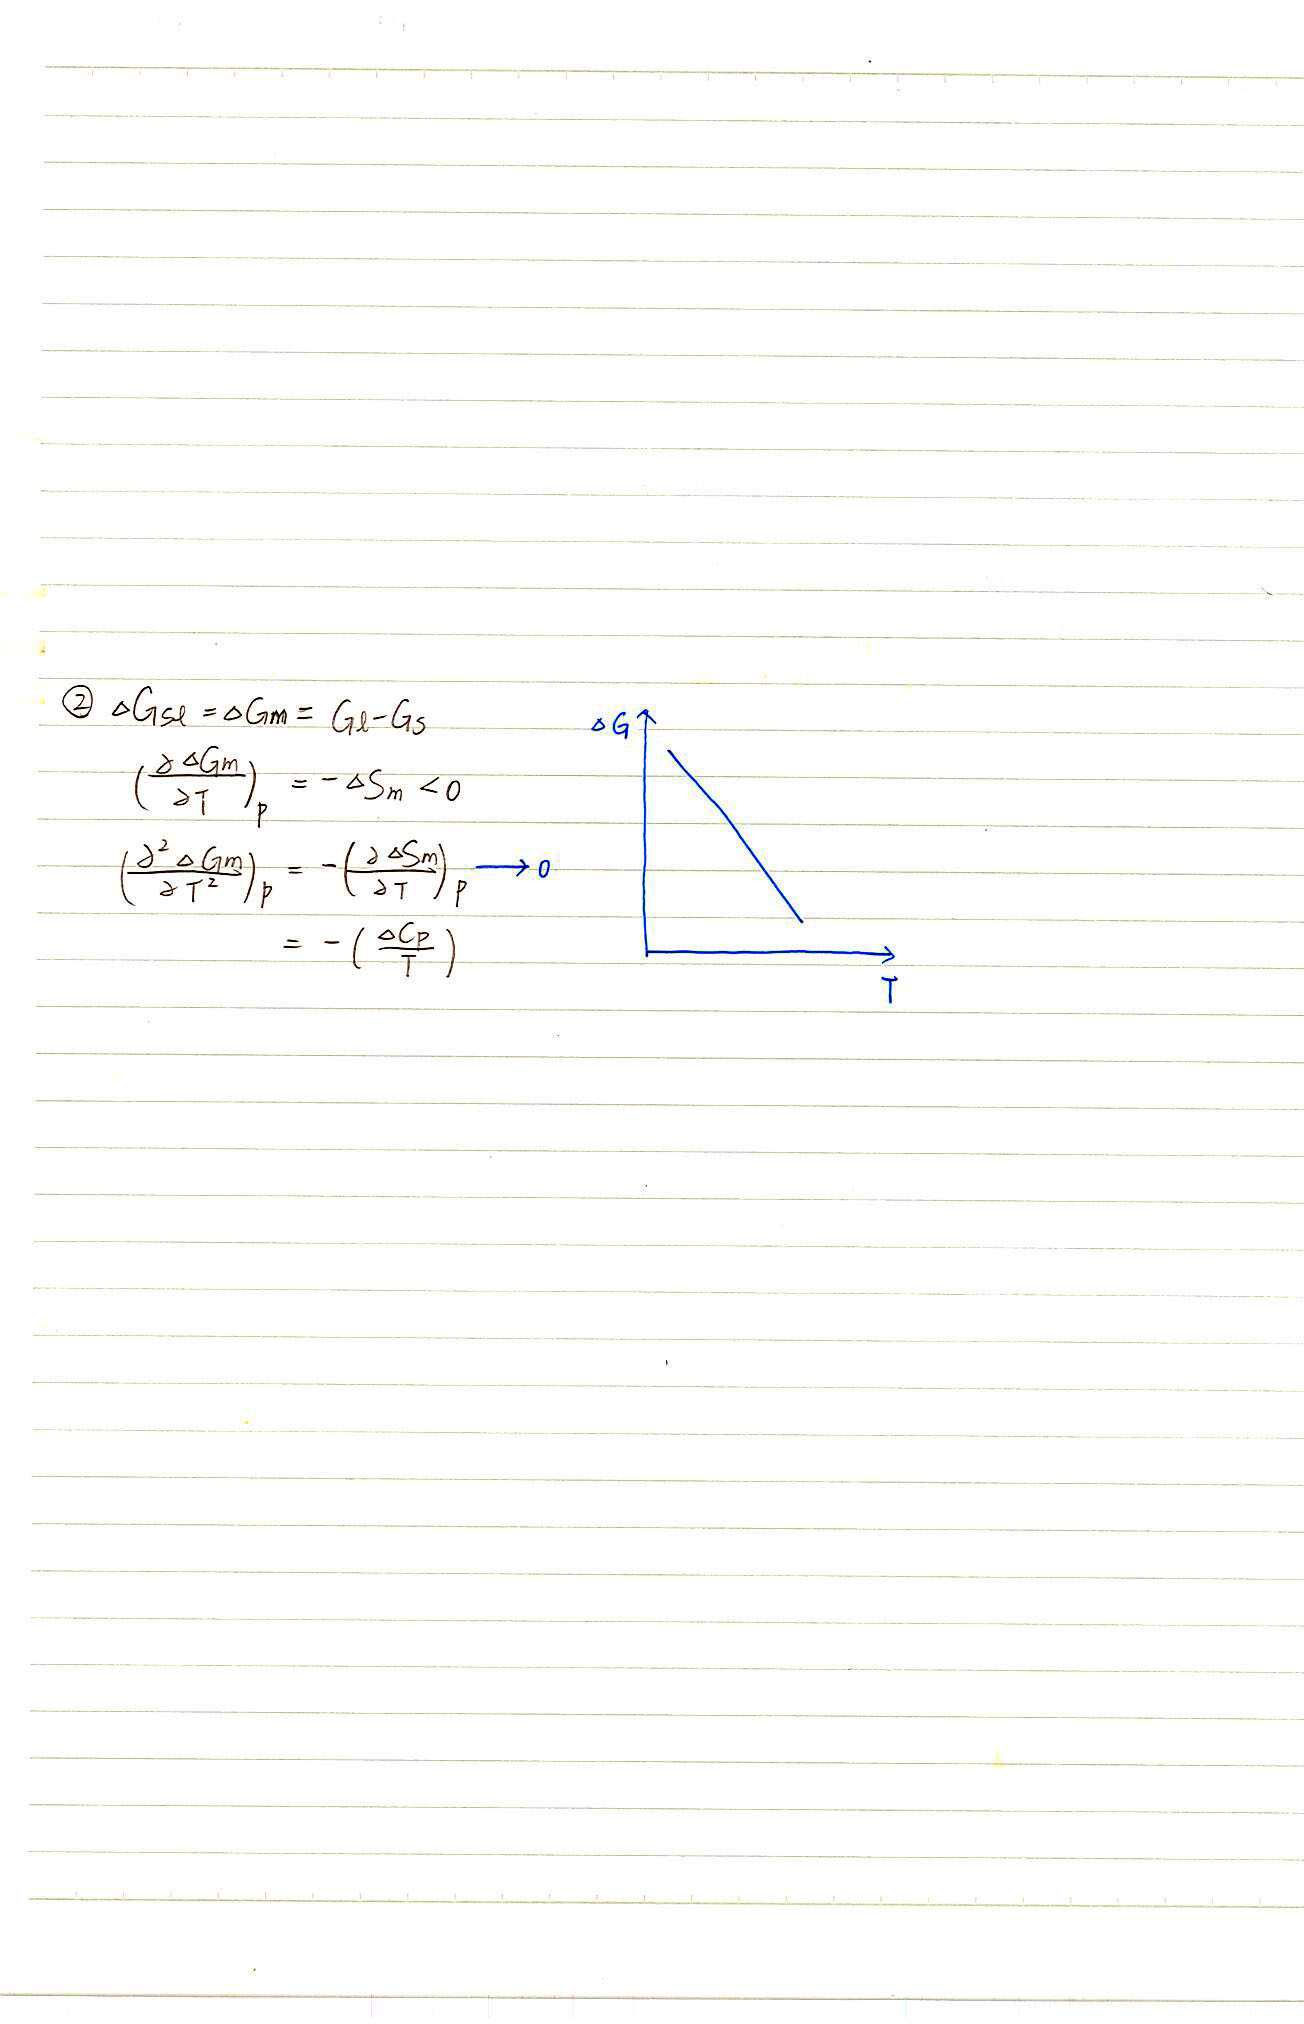 ② ΔGsl = ΔGm = Gl - Gs
(∂ΔGm/∂T)p = -ΔSm < 0
(∂²ΔGm/∂T²)p = -(∂ΔSm/∂T)p → 0
= -(ΔCp/T)
ΔG
T